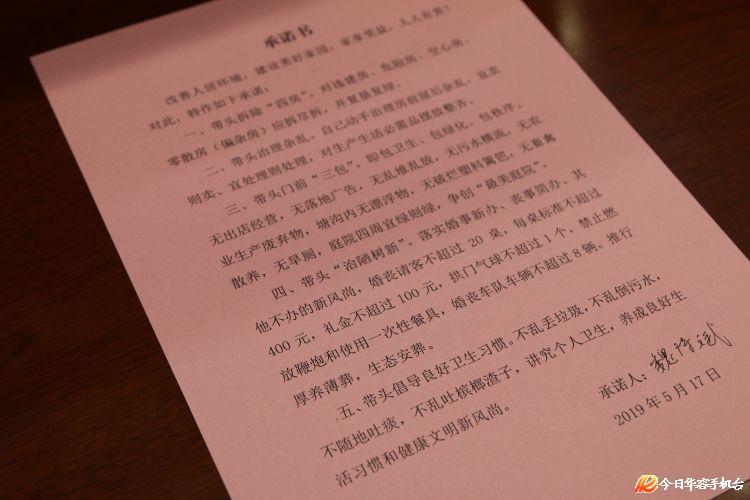 承诺书
改善人居环境，建设美好家园，家家受益，人人有责！
对此，特作如下承诺：
一、带头拆除“四房”。对违建房、危险房、空心房、
零散房（偏杂房）应拆尽拆，并复垦复绿。
二、带头治理杂乱。自己动手治理房前屋后杂乱，宜卖
则卖、宜处理则处理，对生产生活必需品摆放整齐。
三、带头门前“三包”。即包卫生、包绿化、包秩序，
无出店经营，无落地广告，无乱堆乱放，无污水横流，无农
业生产废弃物，塘沟内无漂浮物，无破烂塑料篱笆，无畜禽
散养，无旱厕，庭院四周宜绿则绿，争创“最美庭院”。
四、带头“治陋树新”。落实婚事新办、丧事简办、其
他不办的新风尚，婚丧请客不超过 20 桌，每桌标准不超过
400 元，礼金不超过 100 元，拱门气球不超过 1 个，禁止燃
放鞭炮和使用一次性餐具，婚丧车队车辆不超过 8 辆。推行
厚养薄葬，生态安葬。
五、带头倡导良好卫生习惯。不乱丢垃圾，不乱倒污水，
不随地吐痰，不乱吐槟榔渣子，讲究个人卫生，养成良好生
活习惯和健康文明新风尚。
承诺人：
2019 年 5 月 17 日
今日华容手机台